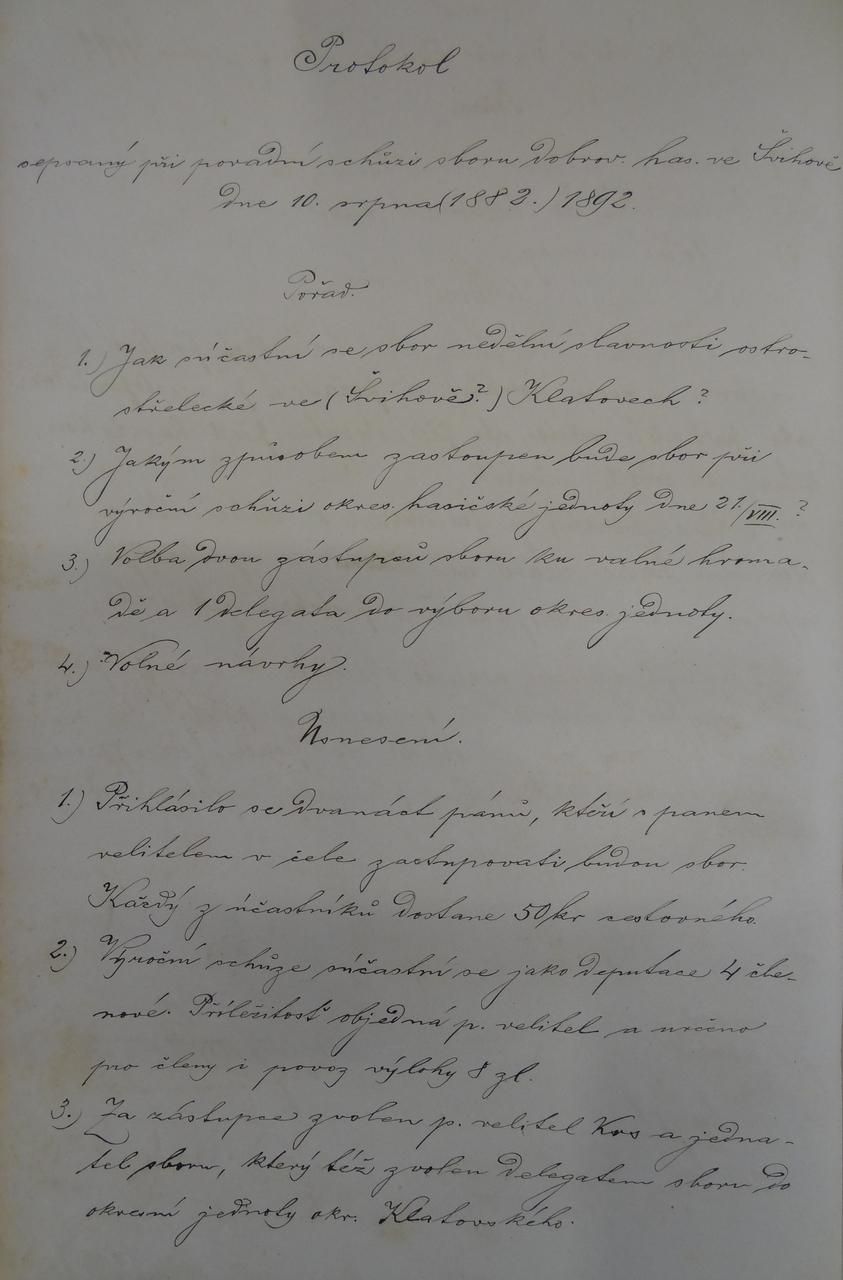 Protokol
sepsaný při poradní schůzi sboru dobrov. has. ve Švihově
dne 10. srpna (1882.) 1892.
Pořad.
1.) Jak súčastní se sbor nedělní slavnosti ostro-
střelecké ve (Švihově?) Klatovech?
2.) Jakým způsobem zastoupen bude sbor při
výroční schůzi okres. hasičské jednoty dne 21./VIII. ?
3.) Volba dvou zástupců sboru ku valné hroma-
dě a 1 delegata do výboru okres. jednoty.
4.) Volné návrhy.
Usnesení.
1.) Přihlásilo se dvanáct pánů, kteří s panem
velitelem v čele zastupovati budou sbor.
Každý z účastníků dostane 50 kr cestovného.
2.) Výroční schůze súčastní se jako deputace 4 čle-
nové. Příležitosť objedná p. velitel a určeno
pro členy i povoz výlohy 8 zl.
3.) Za zástupce zvolen p. velitel Krs a jedna-
tel sboru, který též zvolen delegatem sboru do
okresní jednoty okr. Klatovského.